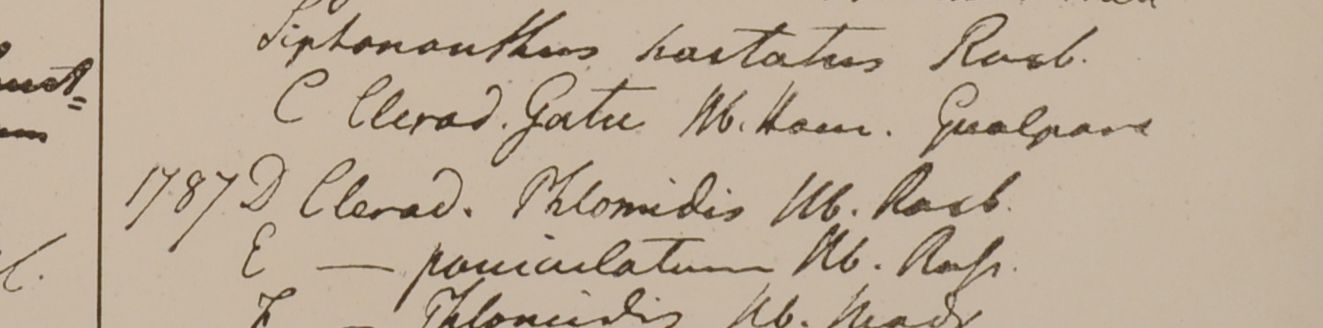 Siphonanthus hastatus Roxb.
C Clerod. Gatu Hb. Ham. Gualpara
1787 D Clerod. Phlomidis Hb. Roxb.
E — paniculatum Hb. Russ.
F — Phlomidis Hb. Madr